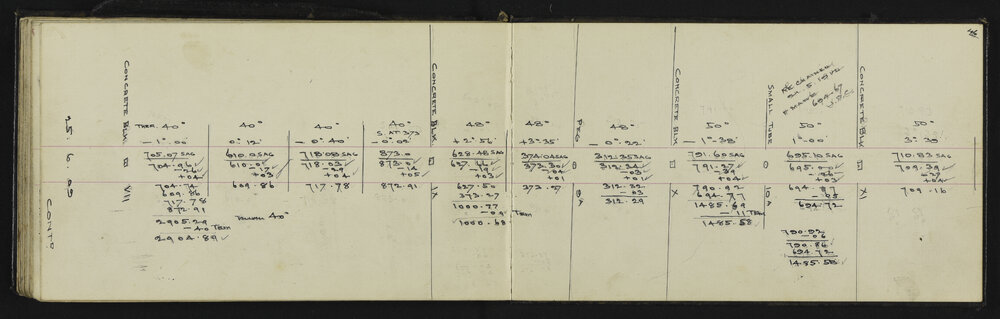 25 6 09
CONTD
CONCRETE BLK
VIII
THER. 40°
— 1°.00'
705.07 SAG
704.96 ✓
— .26
+ .04
704.74
609.86
717.78
872.91
2905.29
— .40 TEM
2904.89 ✓
40°
0°.12'
610.05 SAG
— .17
+ .03
609.86
40°
— 0°.40'
718.08 SAG
718.03 ✓
— .28
+ .03
717.78
40°
S. AT 373
— 0°.05'
873.0
873.0 ✓
— .14
+ .05
872.91
CONCRETE BLK
IX
48°
+ 2°.56'
628.48 SAG
— .19
+ .03
627.50
373.27
1000.77
— .09 TEM
1000.68
48°
+ 3°.35'
374.04 SAG
373.30 ✓
— .04
+ .01
373.27
PEG
48°
— 0°.22'
312.353 SAG
312.34 ✓
— .03
+ .01
312.32
— .03
312.29
CONCRETE BLK
X
50°
— 1°.38'
791.60 SAG
791.27 ✓
— .39
+ .04
790.92
694.77
1485.69
— .11 TEM
1485.58 ✓
SMALL TUBE
RE CHAINED
694.67
50°
— 1°.00'
695.10 SAG
695.0 ✓
— .26
+ .03
694.77
— .05
694.72
790.92
— .06
790.86
694.72
1485.58 ✓
CONCRETE BLK
XI
50°
3°.39'
710.83 SAG
709.39 ✓
— .27
+ .04
709.16